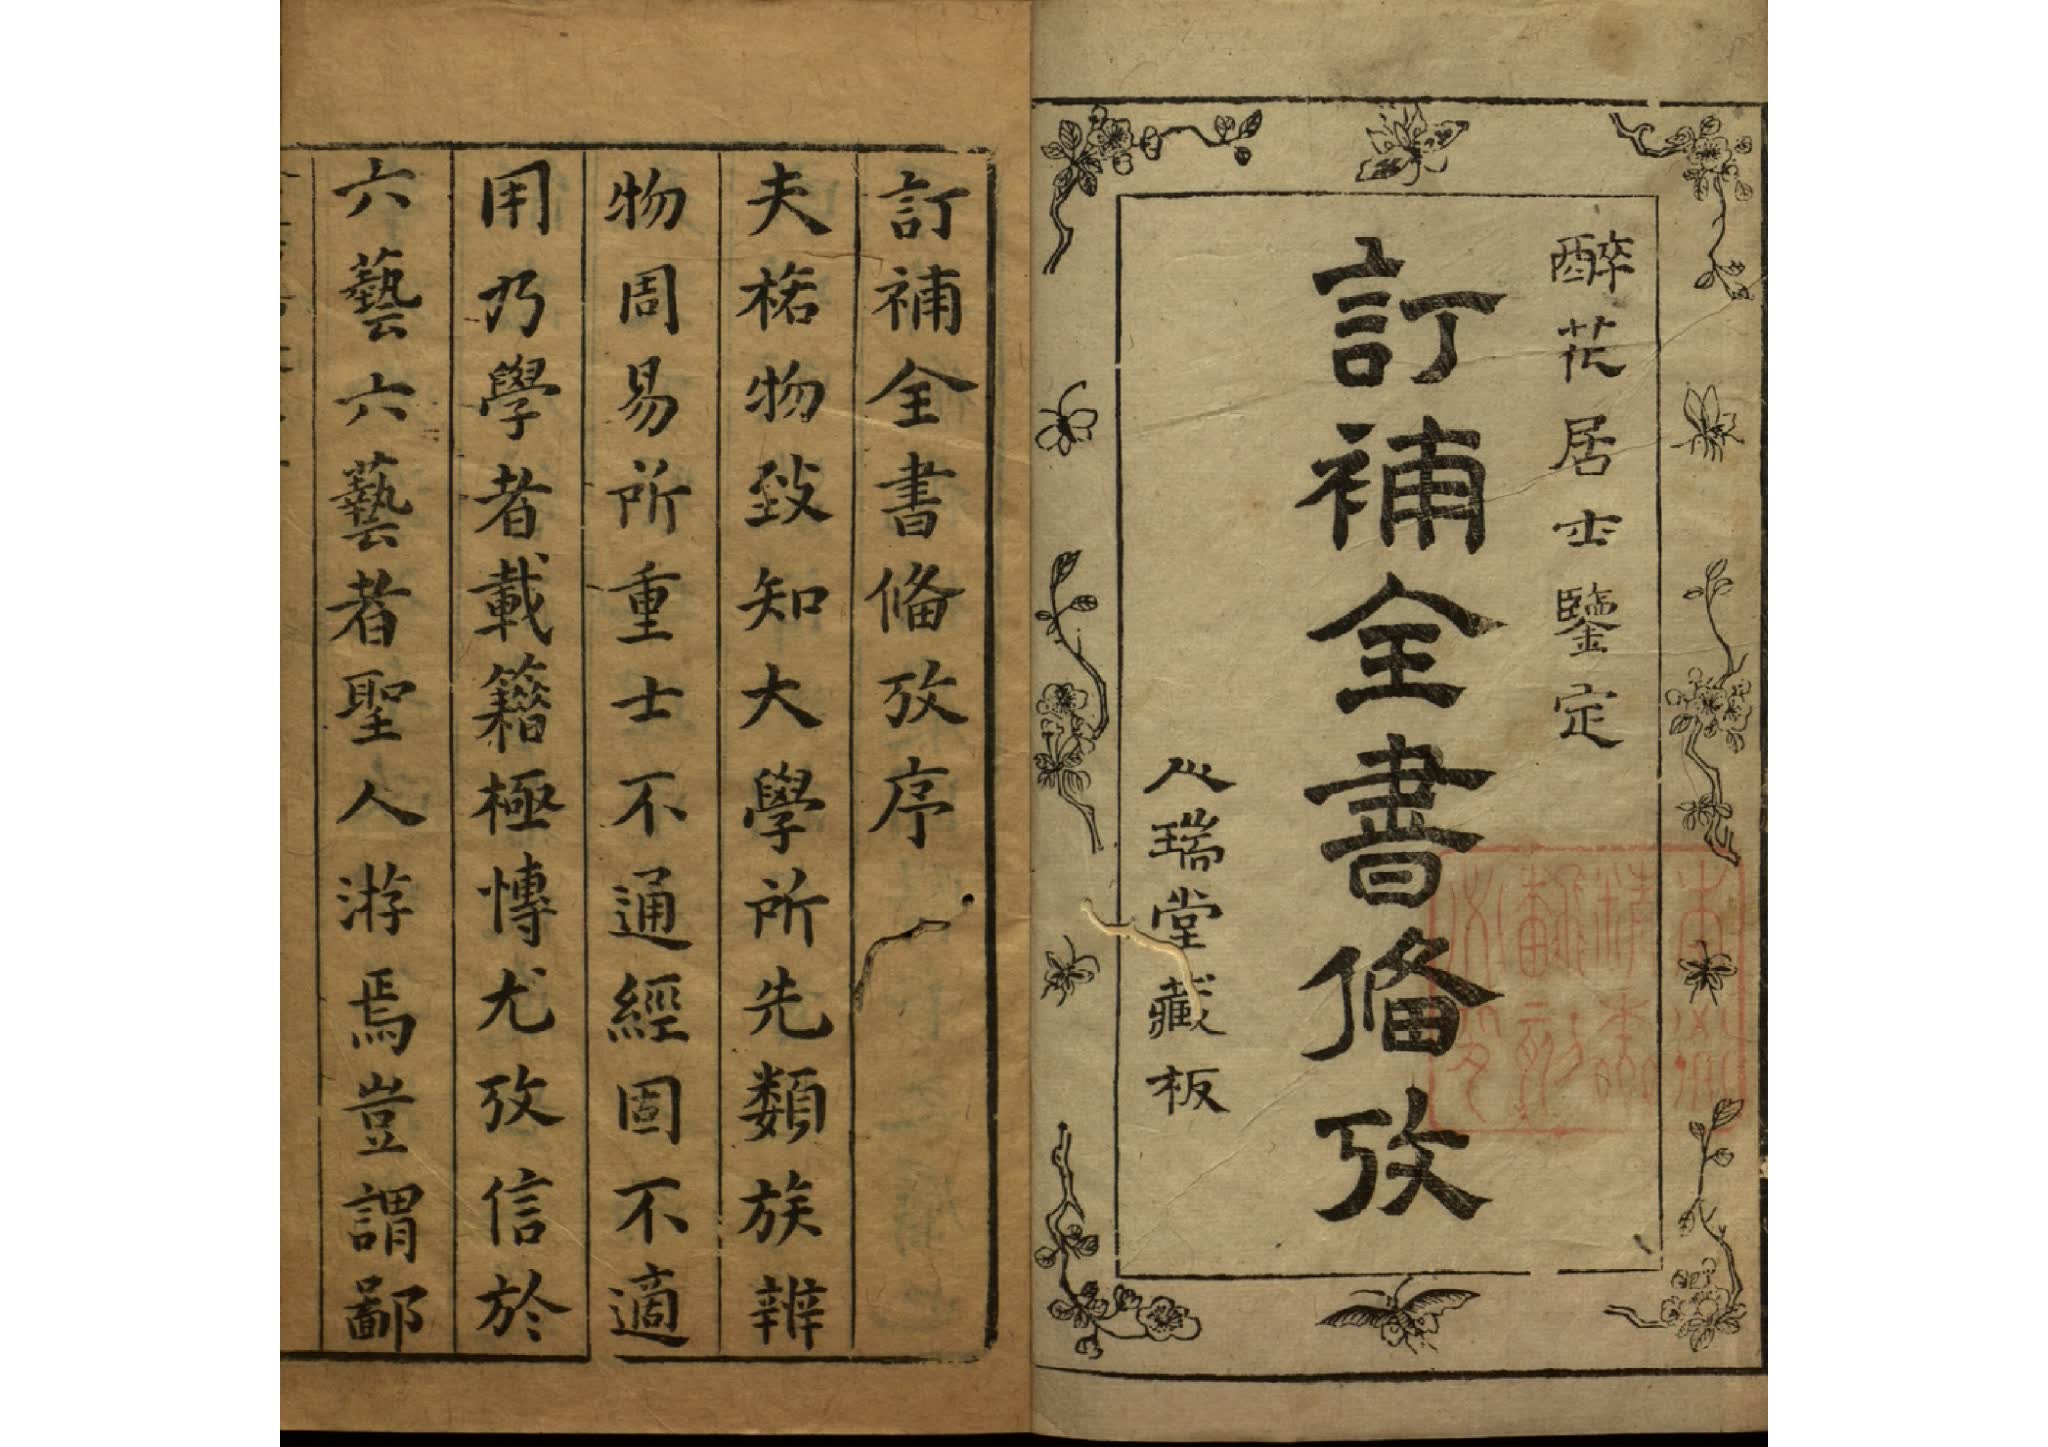 醉花居士鑒定
訂補全書偹攷
人瑞堂藏板
訂補全書偹攷序
夫格物致知大學所先類族辨
物周易所重士不通經固不適
用乃學者載籍極慱尤攷信於
六藝六藝者聖人游焉豈謂鄙